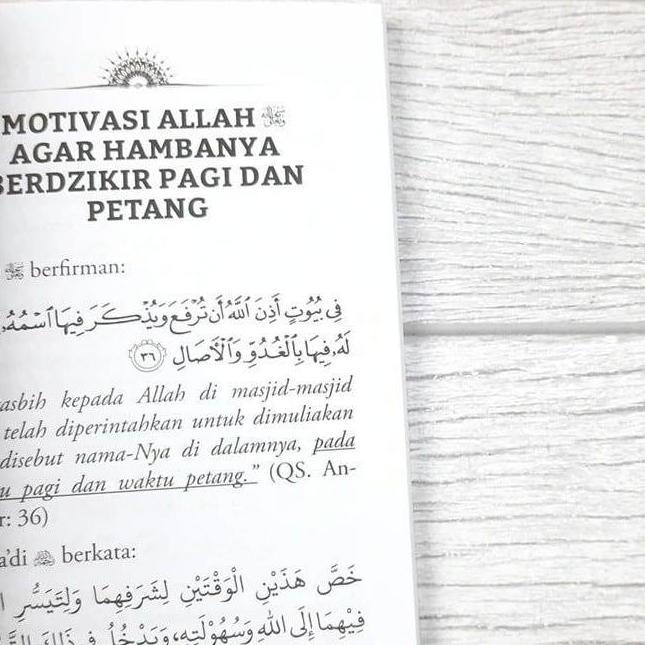 MOTIVASI ALLAH ﷻ
AGAR HAMBANYA
BERDZIKIR PAGI DAN
PETANG
berfirman:
فِي بُيُوتٍ أَذِنَ ٱللَّهُ أَن تُرْفَعَ وَيُذْكَرَ فِيهَا ٱسْمُهُۥ
لَهُۥ فِيهَا بِٱلْغُدُوِّ وَٱلْءَاصَالِ ٣٦
asbih kepada Allah di masjid-masjid
telah diperintahkan untuk dimuliakan
disebut nama-Nya di dalamnya, pada
u pagi dan waktu petang.” (QS. An-
r: 36)
a’di berkata:
خَصَّ هَذَيْنِ الْوَقْتَيْنِ لِشَرَفِهِمَا وَلِتَيَسُّرِ
فِيْهِمَا إِلَى اللهِ وَسُهُوْلَتِهِ، وَيَدْخُلُ فِي ذَلِكَ